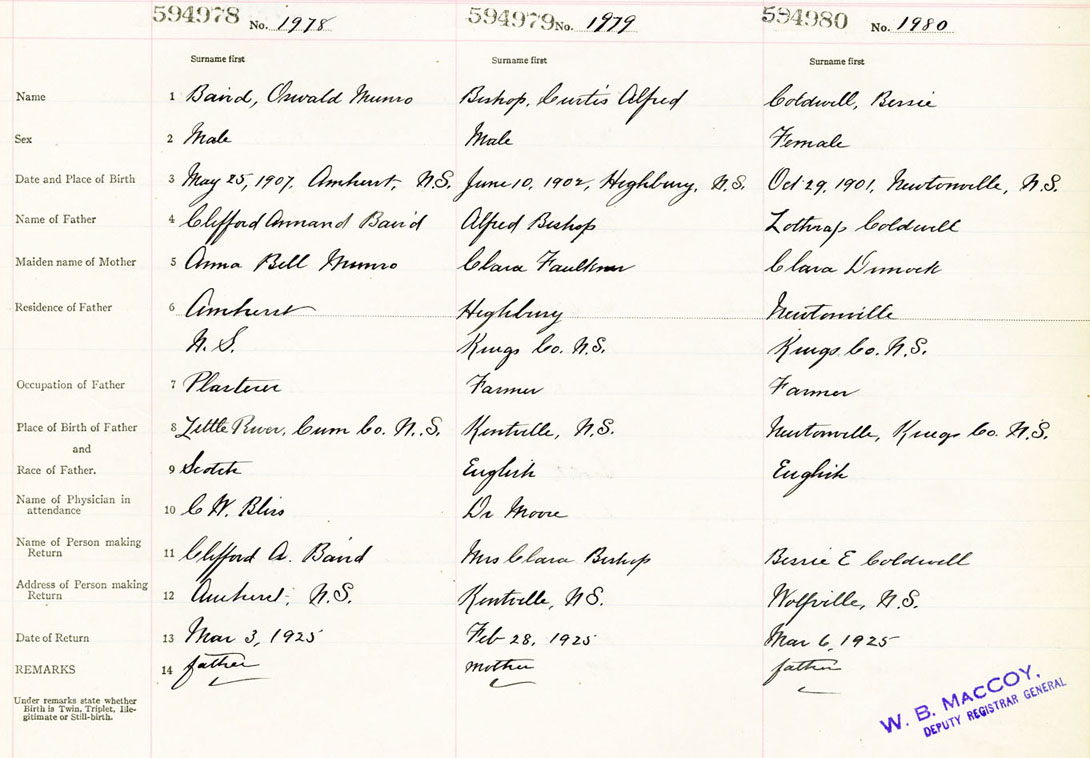 594978 No. 1978 594979 No. 1979 594980 No. 1980
Surname first Surname first Surname first
Name 1 Baird, Oswald Munro Bishop, Curtis Alfred Coldwell, Bessie
Sex 2 Male Male Female
Date and Place of Birth 3 May 25, 1907, Amherst, N.S. June 10, 1902, Highbury, N.S. Oct 29, 1901, Newtonville, N.S.
Name of Father 4 Clifford Armand Baird Alfred Bishop Lothrap Coldwell
Maiden name of Mother 5 Anna Bell Munro Clara Faulkner Clara Dimock
Residence of Father 6 Amherst Highbury Newtonville
N.S. Kings Co. N.S. Kings Co. N.S.
Occupation of Father 7 Plasterer Farmer Farmer
Place of Birth of Father 8 Little River, Cum Co. N.S. Kentville, N.S. Newtonville, Kings Co. N.S.
and
Race of Father. 9 Scotch English English
Name of Physician in
attendance 10 C W. Bliss Dr Moore
Name of Person making
Return 11 Clifford A. Baird Mrs Clara Bishop Bessie E Coldwell
Address of Person making
Return 12 Amherst, N.S. Kentville, N.S. Wolfville, N.S.
Date of Return 13 Mar 3, 1925 Feb 28, 1925 Mar 6, 1925
REMARKS 14 father mother father
Under remarks state whether
Birth is Twin, Triplet, Ille-
gitimate or Still-birth.
W. B. MACCOY,
DEPUTY REGISTRAR GENERAL